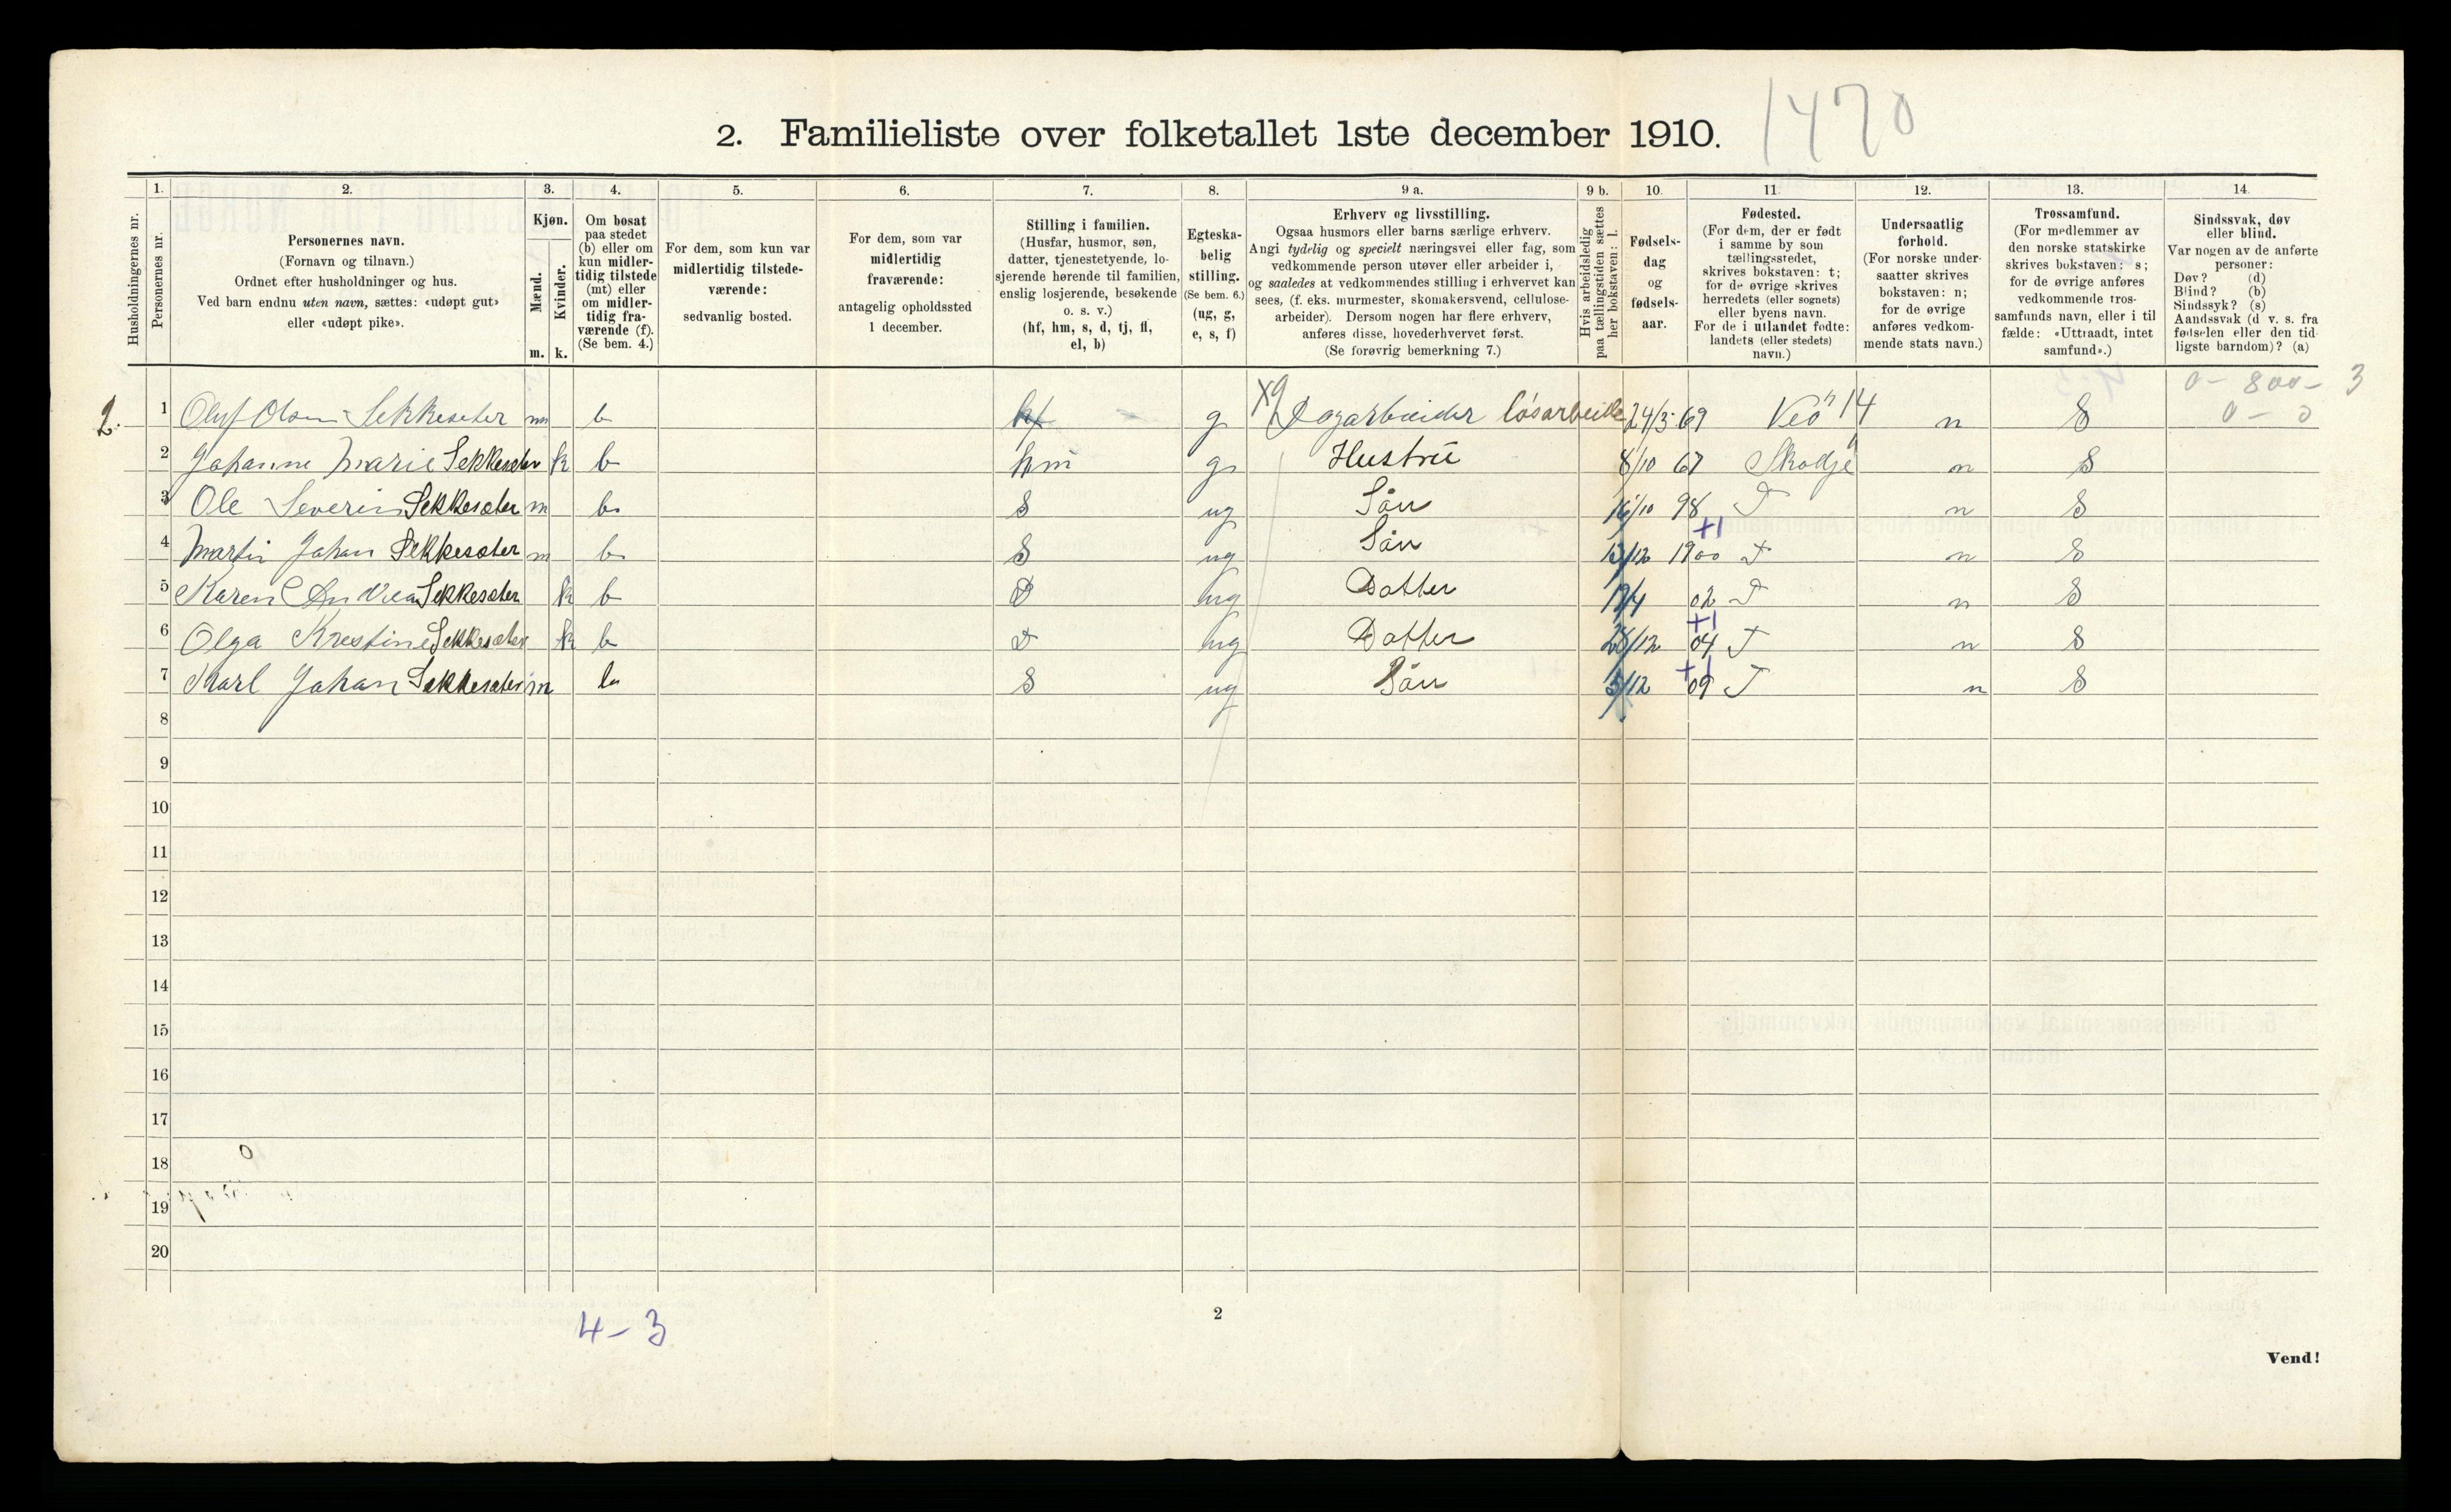 1470
2. Familieliste over folketallet 1ste december 1910.
1. 2. 3. 4. 5. 6. 7. 8. 9 a. 9 b. 10. 11. 12. 13. 14.
Husholdningernes nr.
Personernes nr.
Personernes navn.
(Fornavn og tilnavn.)
Ordnet efter husholdninger og hus.
Ved barn endnu uten navn, sættes: «udøpt gut»
eller «udøpt pike».
Kjøn.
Mænd.
Kvinder.
m. k.
Om bosat
paa stedet
(b) eller om
kun midler-
tidig tilstede
(mt) eller
om midler-
tidig fra-
værende (f).
(Se bem. 4.)
For dem, som kun var
midlertidig tilstede-
værende:
sedvanlig bosted.
For dem, som var
midlertidig
fraværende:
antagelig opholdssted
1 december.
Stilling i familien.
(Husfar, husmor, søn,
datter, tjenestetyende, lo-
sjerende hørende til familien,
enslig losjerende, besøkende
o. s. v.)
(hf, hm, s, d, tj, fl,
el, b)
Egteska-
belig
stilling.
(Se bem. 6.)
(ug, g,
e, s, f)
Erhverv og livsstilling.
Ogsaa husmors eller barns særlige erhverv.
Angi tydelig og specielt næringsvei eller fag, som
vedkommende person utøver eller arbeider i,
og saaledes at vedkommendes stilling i erhvervet kan
sees, (f. eks. murmester, skomakersvend, cellulose-
arbeider). Dersom nogen har flere erhverv,
anføres disse, hovederhvervet først.
(Se forøvrig bemerkning 7.)
Hvis arbeidsledig
paa tællingstiden sættes
her bokstaven: l.
Fødsels-
dag
og
fødsels-
aar.
Fødested.
(For dem, der er født
i samme by som
tællingsstedet,
skrives bokstaven: t;
for de øvrige skrives
herredets (eller sognets)
eller byens navn.
For de i utlandet fødte:
landets (eller stedets)
navn.)
Undersaatlig
forhold.
(For norske under-
saatter skrives
bokstaven: n;
for de øvrige
anføres vedkom-
mende stats navn.)
Trossamfund.
(For medlemmer av
den norske statskirke
skrives bokstaven: s;
for de øvrige anføres
vedkommende tros-
samfunds navn, eller i til
fælde: «Uttraadt, intet
samfund».)
Sindssvak, døv
eller blind.
Var nogen av de anførte
personer:
Døv? (d)
Blind? (b)
Sindssyk? (s)
Aandssvak (d v. s. fra
fødselen eller den tid
ligste barndom)? (a)
0 - 800 - 3
0 - 0
2. 1 Oluf Olsen Sekkeseter m b hf g Dagarbeider løsarbeide 24/3 69 Veø 14 n S
2 Johanne Marie Sekkeseter k b hm g Hustru 8/10 67 Skodje n S
3 Ole Severin Sekkeseter m b S ug Sån 16/10 98 T n S
4 Martin Johan Sekkeseter m b S ug Sån 13/12 1900 +1 T n S
5 Karen Andrea Sekkeseter k b D ug Datter 02 T n S
6 Olga Krestine Sekkeseter k b D ug Datter 28/12 04 +1 T n S
7 Karl Johan Sekkeseter m b S ug Sån 3/12 09 +1 T n S
8
9
10
11
12
13
14
15
16
17
18
19
20
4-3
2
Vend!